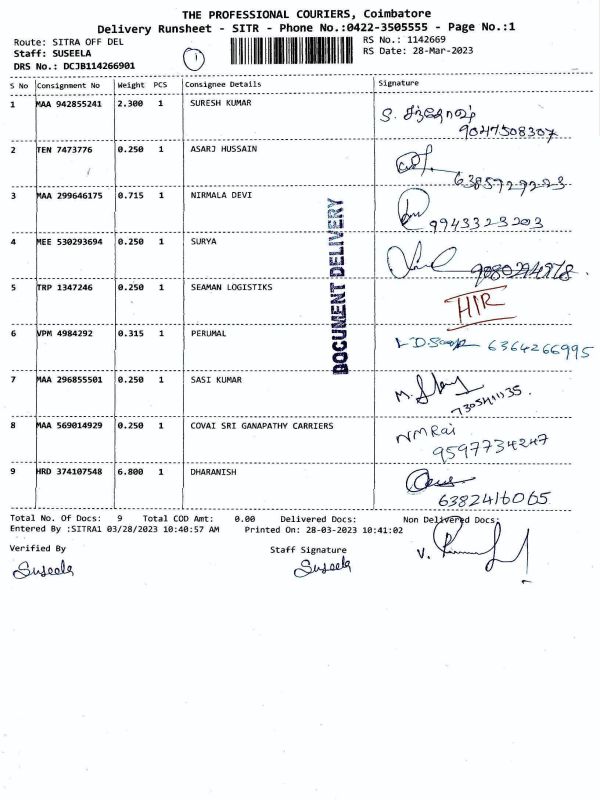 THE PROFESSIONAL COURIERS, Coimbatore
Delivery Runsheet - SITR - Phone No.:0422-3505555 - Page No.:1
Route: SITRA OFF DEL
Staff: SUSEELA
DRS No.: DCJB114266901
1
RS No.: 1142669
RS Date: 28-Mar-2023
S No Consignment No Weight PCS Consignee Details Signature
1 MAA 942855241 2.300 1 SURESH KUMAR
9047508307
2 TEN 7473776 0.250 1 ASARJ HUSSAIN
3 MAA 299646175 0.715 1 NIRMALA DEVI
9943323203
4 MEE 530293694 0.250 1 SURYA
5 TRP 1347246 0.250 1 SEAMAN LOGISTIKS
6 VPM 4984292 0.315 1 PERUMAL
6364266995
7 MAA 296855501 0.250 1 SASI KUMAR
8 MAA 569014929 0.250 1 COVAI SRI GANAPATHY CARRIERS
9597734247
9 HRD 374107548 6.800 1 DHARANISH
6382416065
DOCUMENT DELIVERY
Total No. Of Docs: 9 Total COD Amt: 0.00 Delivered Docs: Non Delivered Docs:
Entered By :SITRA1 03/28/2023 10:40:57 AM Printed On: 28-03-2023 10:41:02
Verified By Staff Signature
Suseela Suseela